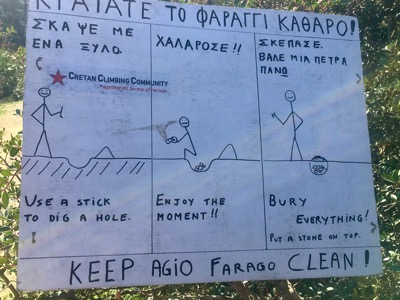 ΚΡΑΤΑΤΕ ΤΟ ΦΑΡΑΓΓΙ ΚΑΘΑΡΟ!
ΣΚΑΨΕ ΜΕ
ΕΝΑ ΞΥΛΟ
ΧΑΛΑΡΩΣΕ!!
ΣΚΕΠΑΣΕ.
ΒΑΛΕ ΜΙΑ ΠΕΤΡΑ
ΠΑΝΩ
CRETAN CLIMBING COMMUNITY
*against all forms of racism
USE A STICK
TO DIG A HOLE.
ENJOY THE
MOMENT!!
BURY
EVERYTHING!
PUT A STONE ON TOP.
KEEP AGIO FARAGO CLEAN!